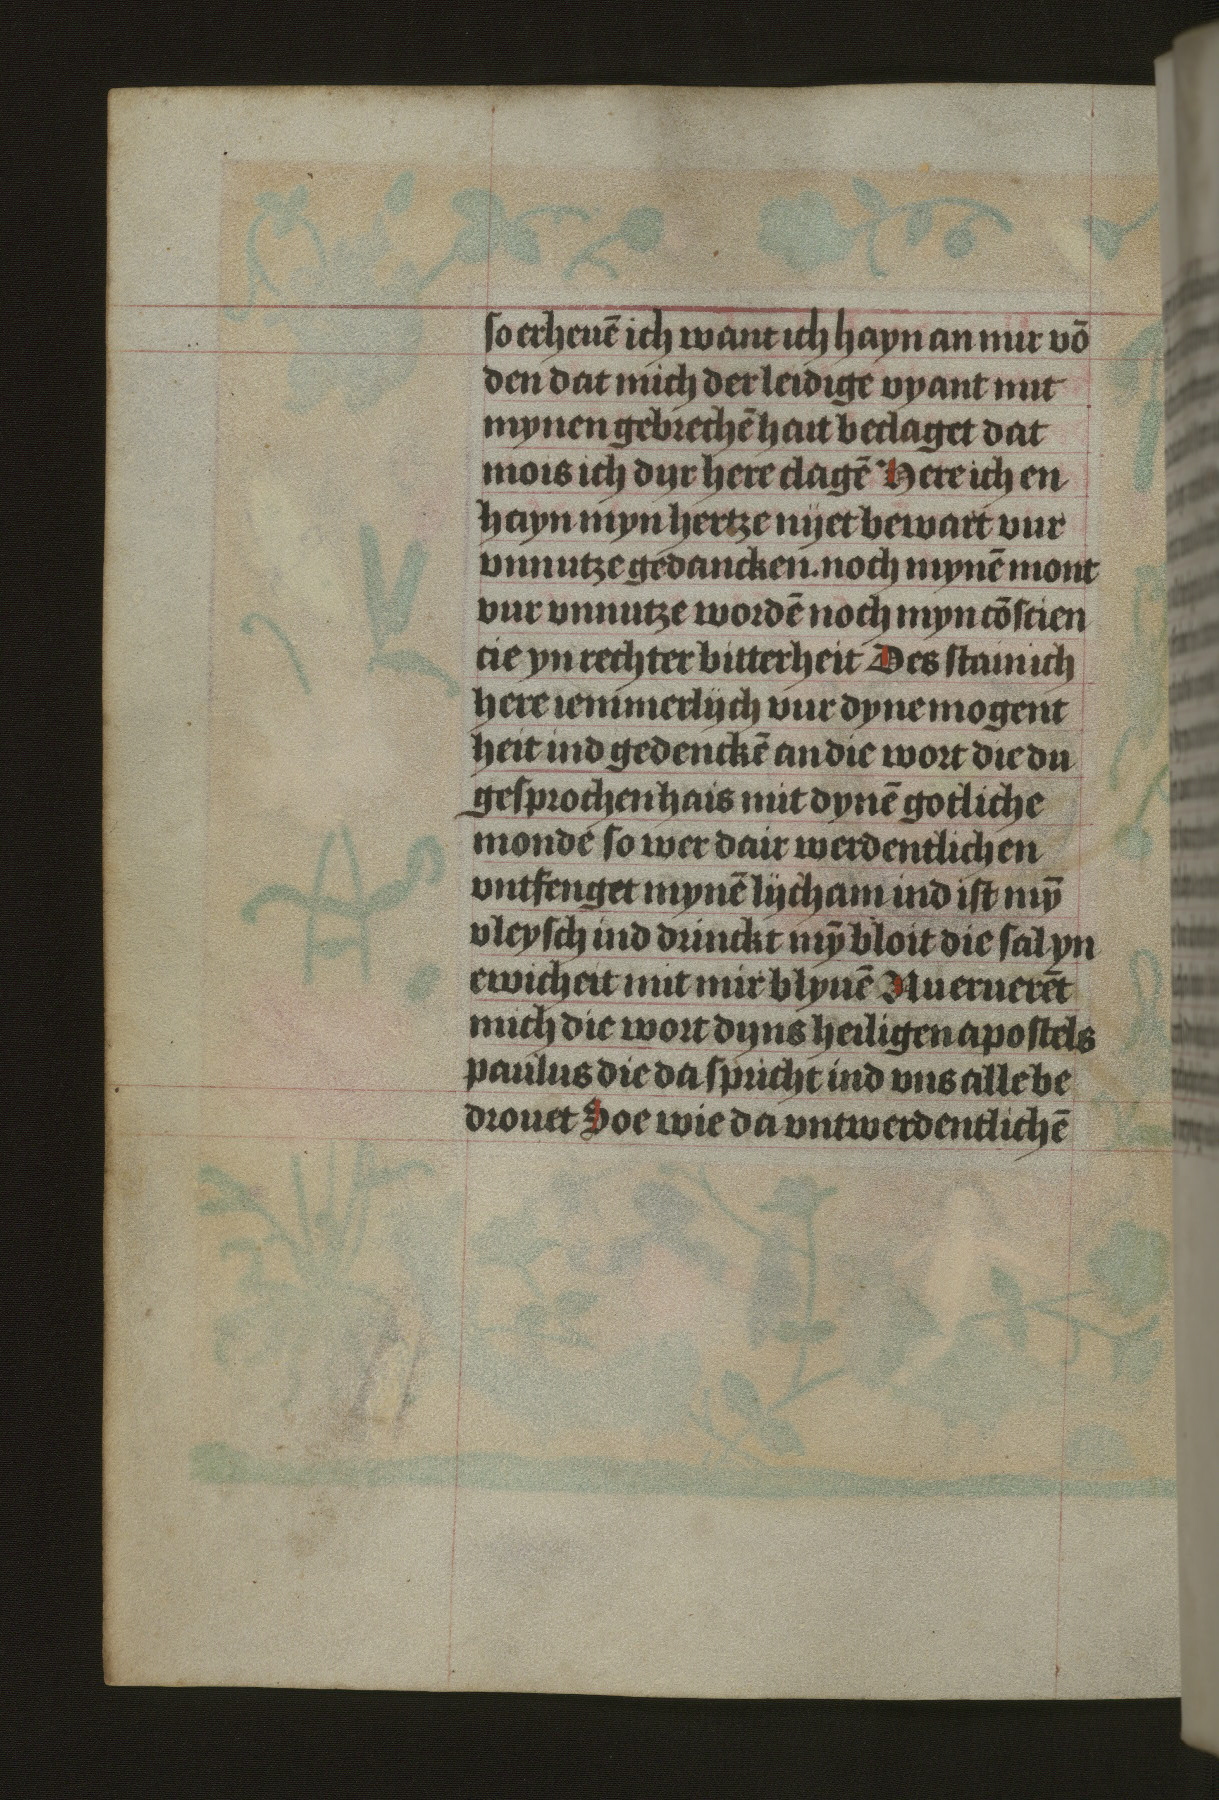 so erheuē ich want ich hayn an mir vō
den dat mich der leidige vyant mit
mynen gebrechē hait beclaget dat
mois ich dyr here clagē Here ich en
hayn myn hertze nyet bewart vur
vnnutze gedancken. noch mynē mont
vur vnnutze wordē noch myn cōscien
cie yn rechter bitterheit Des stain ich
here iemmerlych vur dyne mogent
heit ind gedenckē an die wort die du
gesprochen hais mit dynē gotliche
monde so wer dair werdentlichen
vntfenget mynē lycham ind ist mȳ
vleysch ind drinckt mȳ bloit die sal yn
ewicheit mit mir blyuē Nu eruerēt
mich die wort dyns heiligen apostels
paulus die da spricht ind vns alle be
drouet Soe wie da vntwerdentlichē